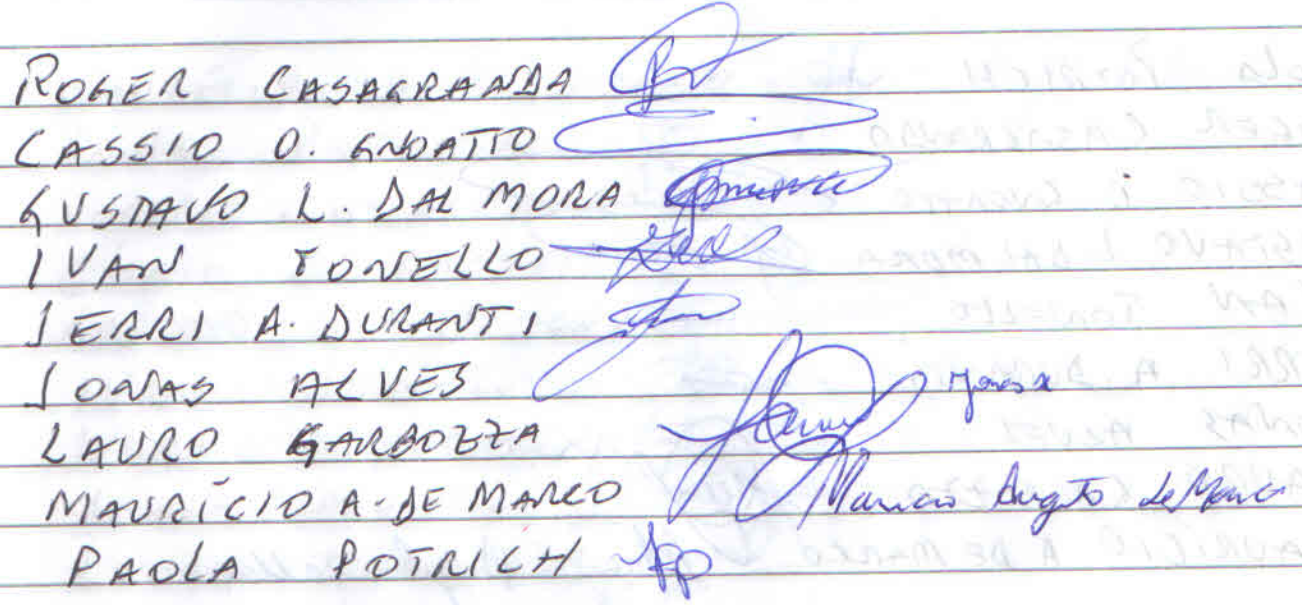 ROGER CASAGRANDA
CASSIO O. GNOATTO
GUSTAVO L. DAL MORA
IVAN TONELLO
JERRI A. DURANTI
JONAS ALVES Jonas a
LAURO GARBOZZA
MAURÍCIO A. DE MARCO Mauricio Augusto de Marco
PAOLA POTRICH